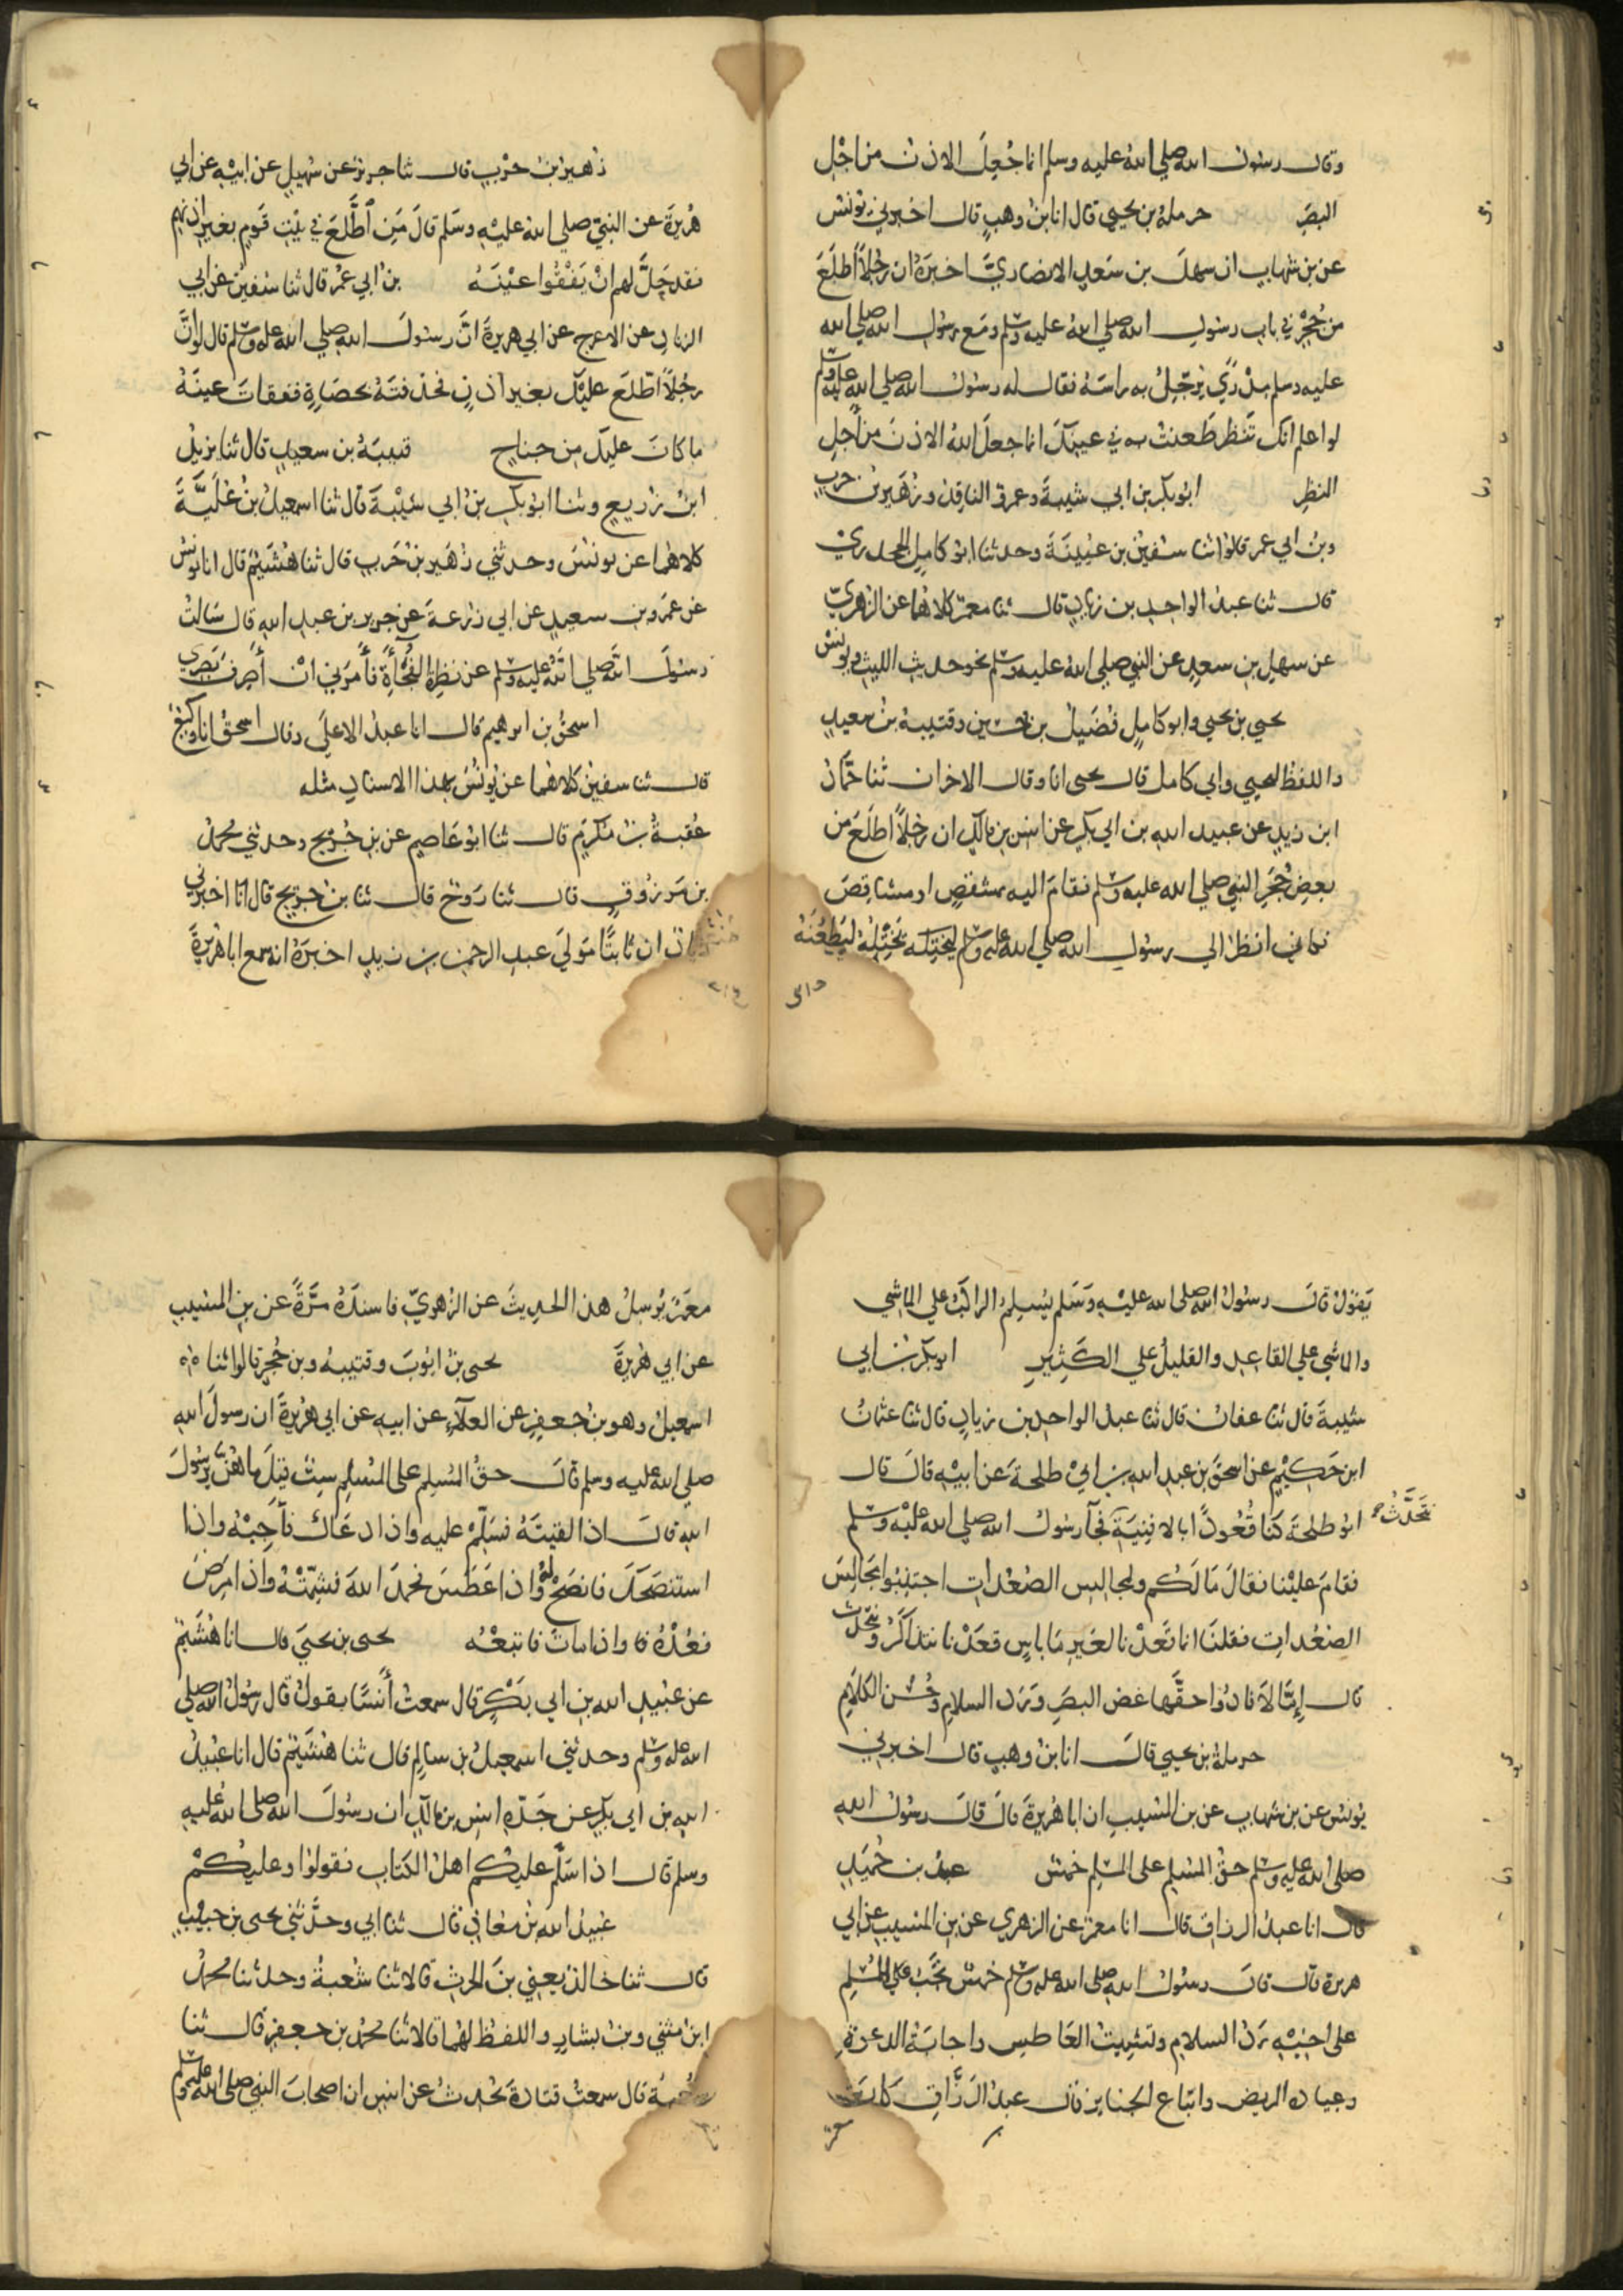 وقال رسول الله صلى الله عليه وسلم انما جُعِلَ الاذن من اجْلِ
البصَرِ حرملة بن يحيى قال انا بنُ وهبٍ قال اخبرني يونس
عن بن شهاب ان سهل بن سَعدٍ الانصاريَّ اخبرَهُ ان رجُلاً اطلَعَ
من جُحْرٍ في باب رسولِ الله صلى الله عليه وسلم ومَع رسول الله صلى الله
عليه وسلم مِدْرًى يُرَجِّلُ به راسَهُ فقال له رسول الله صلى الله عليه وسلم
لو اعلم انك تَنظُر طَعنتُ به في عينِكَ انما جعلَ اللهُ الاذنَ من اَجلِ
النظرِ ابو بكر بن ابي شيبةَ وعمرو الناقِدُ وزُهَيرُ بن حربٍ
وبن ابي عمر قالوا ثنا سُفينُ بن عيينَةَ وحدثنا ابو كامِلٍ الجحدريُّ
قال ثنا عبدُ الواحِدِ بن زيادٍ قال ثنا معمرٌ كلاهُما عن الزهريِّ
عن سهلِ بنِ سعدٍ عن النبي صلى الله عليه وسلم نحو حديثِ الليثِ ويونسَ
يحيى بن يحيى وابو كامِلٍ فُضَيلُ بن حسين وقتيبة بن سعيدٍ
واللفظُ ليحيى وابي كامل قال يحيى انا وقال الاخران ثنا حَمّادُ
ابن زيدٍ عن عبيد الله بن ابي بكرٍ عن انسِ بنِ مالكٍ ان رجُلاً اطلَعَ من
بعضِ حُجَرِ النبي صلى الله عليه وسلم فقامَ اليه بمشقصٍ او مشاقِصَ
فكاني انظرُ الى رسول الله صلى الله عليه وسلم يختِلُه ليَطْعُنَهُ
زُهيرُ بنُ حَرْبٍ قال ثنا جريرٌ عن سُهيلٍ عن ابيْهِ عن ابي
هُرَيرَةَ عن النبيِّ صلى الله عليْهِ وسَلم قالَ مَنِ اطَّلَعَ في بَيْتِ قَومٍ بغيرِ اذنهم
فقد حَلَّ لهم انْ يَفْقَؤوا عيْنَهُ بن ابي عمَرَ قال ثنا سُفينُ عن ابي
الزنادِ عن الاعرج عن ابي هريرةَ انَّ رسولَ الله صلى الله عليه وسلم قال لو انَّ
رجُلاً اطَّلَعَ عليْكَ بغيرِ اذنٍ فخذفتَهُ بحصَاةٍ ففقاتَ عينَهُ
ما كانَ عليك مِن جناحٍ قتيبَةُ بن سعيدٍ قال ثنا يزيدُ
ابنُ زريعٍ وثنا ابو بكرِ بنُ ابي شَيْبةَ قال ثنا اسمعيلُ بنُ عُلَيَّةَ
كلاهُما عن يونُسَ وحدثني زُهَيرُ بنُ حَربٍ قال ثنا هُشَيْمٌ قال انا يونُسُ
عن عَمرِو بن سعيدٍ عن ابي زُرعةَ عن جريرِ بن عبدِ اللهِ قال سَالتُ
رسولَ اللهِ صلى اللهُ عليه وسلم عن نظرةِ الفُجَأةِ فأَمرَني انْ أَصرِفَ بَصَري
اسحقُ بن ابرهيم قال انا عبدُ الاعلَى وقال اسحقُ انا وكيعٌ
قال ثنا سفينُ كلاهُما عن يُونُسَ بهذا الاسنادِ مثله
عُقبةُ بنُ مُكرَمٍ قال ثنا ابو عَاصِمٍ عن بنِ جُرَيجٍ وحدثني محمدُ
بن مَرزُوقٍ قال ثنا رَوحٌ قال ثنا بنُ جُرَيج قال انا اخبرني
زيادٌ ان ثابتًا مَولَى عبدِ الرحمن بن زيدٍ اخبرَهُ انه سمع ابا هُرَيرةَ
يَقولُ قالَ رسولُ الله صلى الله عليْهِ وَسَلم يُسَلِّمُ الراكبُ على الماشي
والماشي على القاعِدِ والقليلُ على الكَثيرِ ابو بكر بنُ ابي
شيبةَ قال ثنا عفانُ قال ثنا عبدُ الواحِدِ بن زيادٍ قال ثنا عثمانُ
ابن حَكِيْمٍ عن اسحقَ بن عبدِ اللهِ بن ابيْ طلحةَ عن ابيْهِ قالَ قال
ابو طلحةَ كنّا قُعُودًا بالافنِيَةِ نَتَحَدَّثُ فجآ رسولُ الله صلى الله عليْهِ وسلم
فقامَ عليْنا فقالَ مَا لَكُم ولمجالِسِ الصُّعُداتِ اجتنِبُوا مَجَالِسَ
الصُّعُداتِ فقلنا انما قَعَدْنا لغَيرِ مَا باسٍ قعَدْنا نتذاكَرُ ونتحدّثُ
قال إِمَّا لَا فادُّوا حقَّها غض البصَرِ وَرَد السلامِ وحُسْن الكلَامِ
حرملةُ بن يحيى قالَ انا بنُ وهبٍ قال اخبرني
يُونسُ عن بن شهابٍ عن بن المسيبِ ان ابا هُرَيرةَ قالَ قالَ رسولُ اللهِ
صلى الله عليه وسلم حقُّ المسلِمِ على المسلِمِ خَمسٌ عبدُ بن حُمَيدٍ
قال انا عبدُ الرزاق قال انا معمَرٌ عن الزهري عن بن المسيب عن ابي
هريرة قال قالَ رسولُ اللهِ صلى الله عليه وسلم خَمسٌ تَجِبُ على المُسلِمِ
على اخيْهِ رَدُّ السلامِ وتشميتُ العَاطِسِ واجابَةُ الدعوةِ
وعيادة المريض واتّباع الجنايز قال عبدُ الرزَّاقِ كانَ
معمَرٌ يُرسِلُ هذا الحديثَ عن الزهريِّ فاسندَهُ مَرَّةً عن بنِ المسَيبِ
عن ابي هُرَيرةَ يحيى بنُ ايوبَ وقتيبة وبن حُجرٍ قالوا ثنا
اسمعيلُ وهو بنُ جعفرٍ عن العلآءِ عن ابيهِ عن ابي هرَيرةَ ان رسولَ اللهِ
صلى الله عليه وسلم قالَ حقُّ المُسلِمِ على المُسلِمِ سِتٌّ قيْلَ ما هُنَّ يرسُولَ
اللهِ قالَ اذا لقيتَهُ فسَلِّمْ عليه واذا دعَاكَ فأَجِبْهُ واذا
استنصَحَكَ فانصَحْ لَهُ واذا عَطَسَ فحمدَ اللهَ فشَمِّتْهُ واذا مَرِضَ
فعُدْهُ واذا ماتَ فاتبَعْهُ يحيى بن يحيَى قال انا هُشَيمٌ
عن عبيدِ الله بن ابي بَكْرٍ قال سمعتُ أَنسًا يقولُ قال رسولُ الله صلى
الله عليه وسلم وحدثني اسمعيلُ بن سالِمٍ قال ثنا هُشَيْمٌ قال انا عُبيدُ
اللهِ بن ابي بكرٍ عن جَدِّهِ انسِ بن مالكٍ ان رسُولَ الله صلى الله عليهِ
وسلم قال اذا سَلَّم عليكُم اهلُ الكتابِ فقولوا وعليكُمْ
عُبيدُ الله بنُ مُعاذٍ قال ثنا ابي وحدَّثني يحيى بن حبيْبٍ
قال ثنا خالدٌ يعني بنَ الحرث قالا ثنا شُعْبةُ وحدثنا محمدُ
ابنُ مثنى وبنُ بشارٍ واللفظُ لهُما قالا ثنا محمدُ بن جعفرٍ قال ثنا
شُعبةُ قال سمعتُ قتادةَ يُحدثُ عن انسٍ ان اصحابَ النبيِ صلى الله عليه وسلم